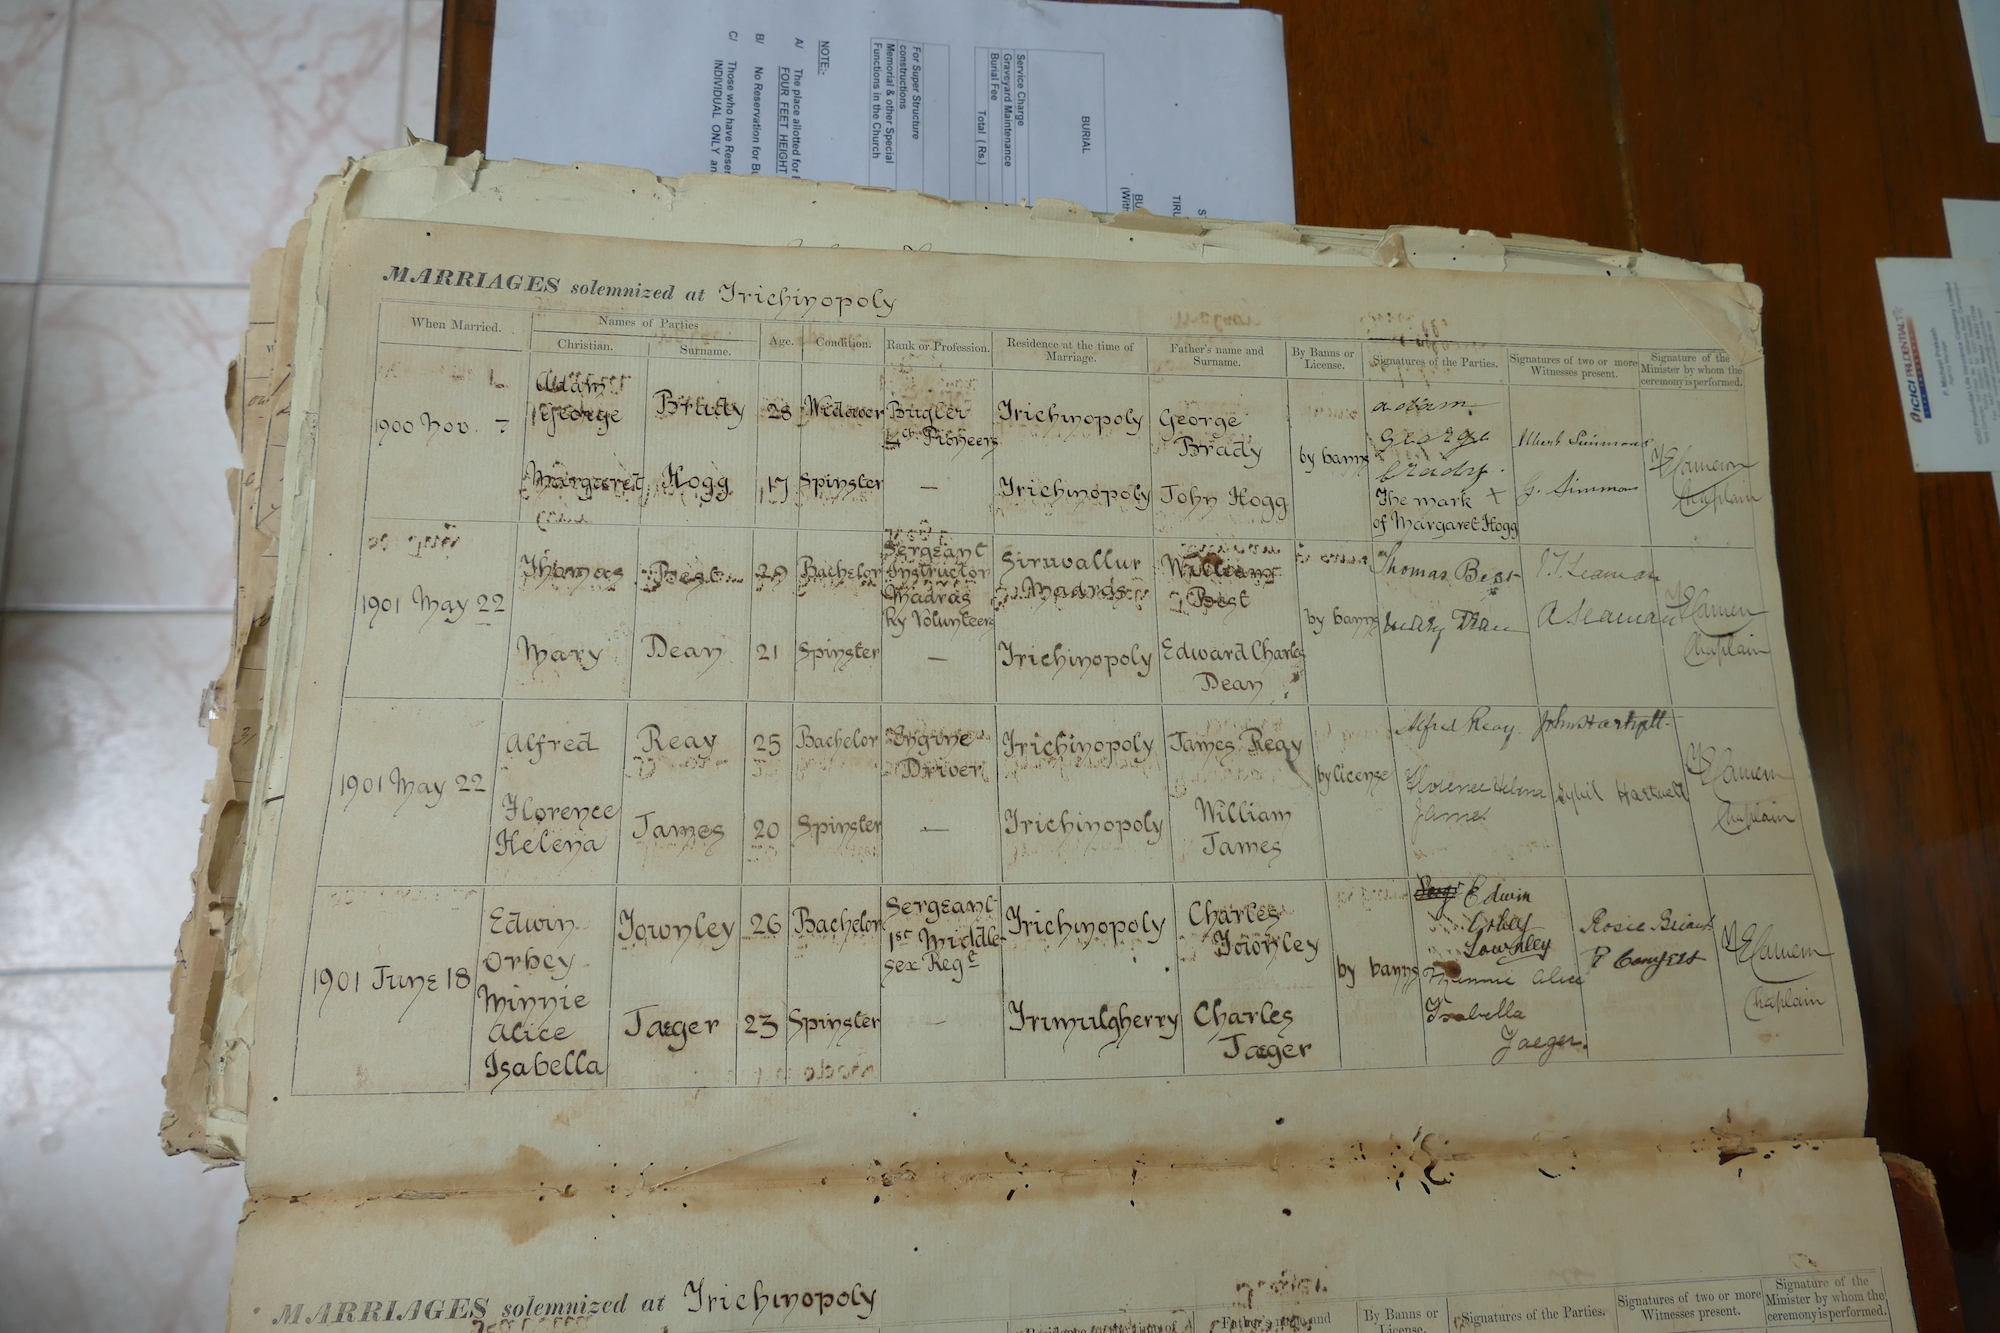 BURIAL
Service Charge
Graveyard Maintenance
Burial Fee Total ( Rs.)
For Super Structure
constructions
Memorial & other Special
Functions in the Church
NOTE:-
A/ The place allotted for
FOUR FEET HEIGHT
B/ No Reservation for
C/ Those who have
INDIVIDUAL ONLY
ICICI PRUDENTIAL
MARRIAGES solemnized at Trichinopoly
When Married.
Names of Parties
Christian.
Surname.
Age.
Condition.
Rank or Profession.
Residence at the time of
Marriage.
Father's name and
Surname.
By Banns or
License.
Signatures of the Parties.
Signatures of two or more
Witnesses present.
Signature of the
Minister by whom the
ceremony is performed.
1900 Nov. 7
Adam
George
Brady
28
Widower
Bugler
4th Pioneers
Trichinopoly
George
Brady
by banns
adam
George
brady.
Albert Simmons
Margaret
Hogg
17
Spinster
—
Trichinopoly
John Hogg
The mark X
of Margaret Hogg
G. Simmons
Chaplain
1901 May 22
Thomas
Best
29
Bachelor
Sergeant
Instructor
Madras
Ry Volunteers
Siruvallur
Madras
William
Best
by banns
Thomas Best
Mary
Dean
21
Spinster
—
Trichinopoly
Edward Charles
Dean
Mary Dean
A Seaman
Chaplain
1901 May 22
Alfred
Reay
25
Bachelor
Engine
Driver
Trichinopoly
James Reay
by license
Alfred Reay
John Hartnett
Florence
Helena
James
20
Spinster
—
Trichinopoly
William
James
Florence Helena
James
Sybil Hartnett
Chaplain
1901 June 18
Edwin
Orbey
Townley
26
Bachelor
Sergeant
1st Middle-
sex Regt
Trichinopoly
Charles
Townley
by banns
Edwin
Orbey
Townley
Rosie Briant
Minnie
Alice
Isabella
Jaeger
23
Spinster
—
Trimulgherry
Charles
Jaeger
Minnie Alice
Isabella
Jaeger.
Chaplain
MARRIAGES solemnized at Trichinopoly
Father's name and
By Banns or
License.
Signatures of the Parties.
Signatures of two or more
Witnesses present.
Signature of the
Minister by whom the
ceremony is performed.